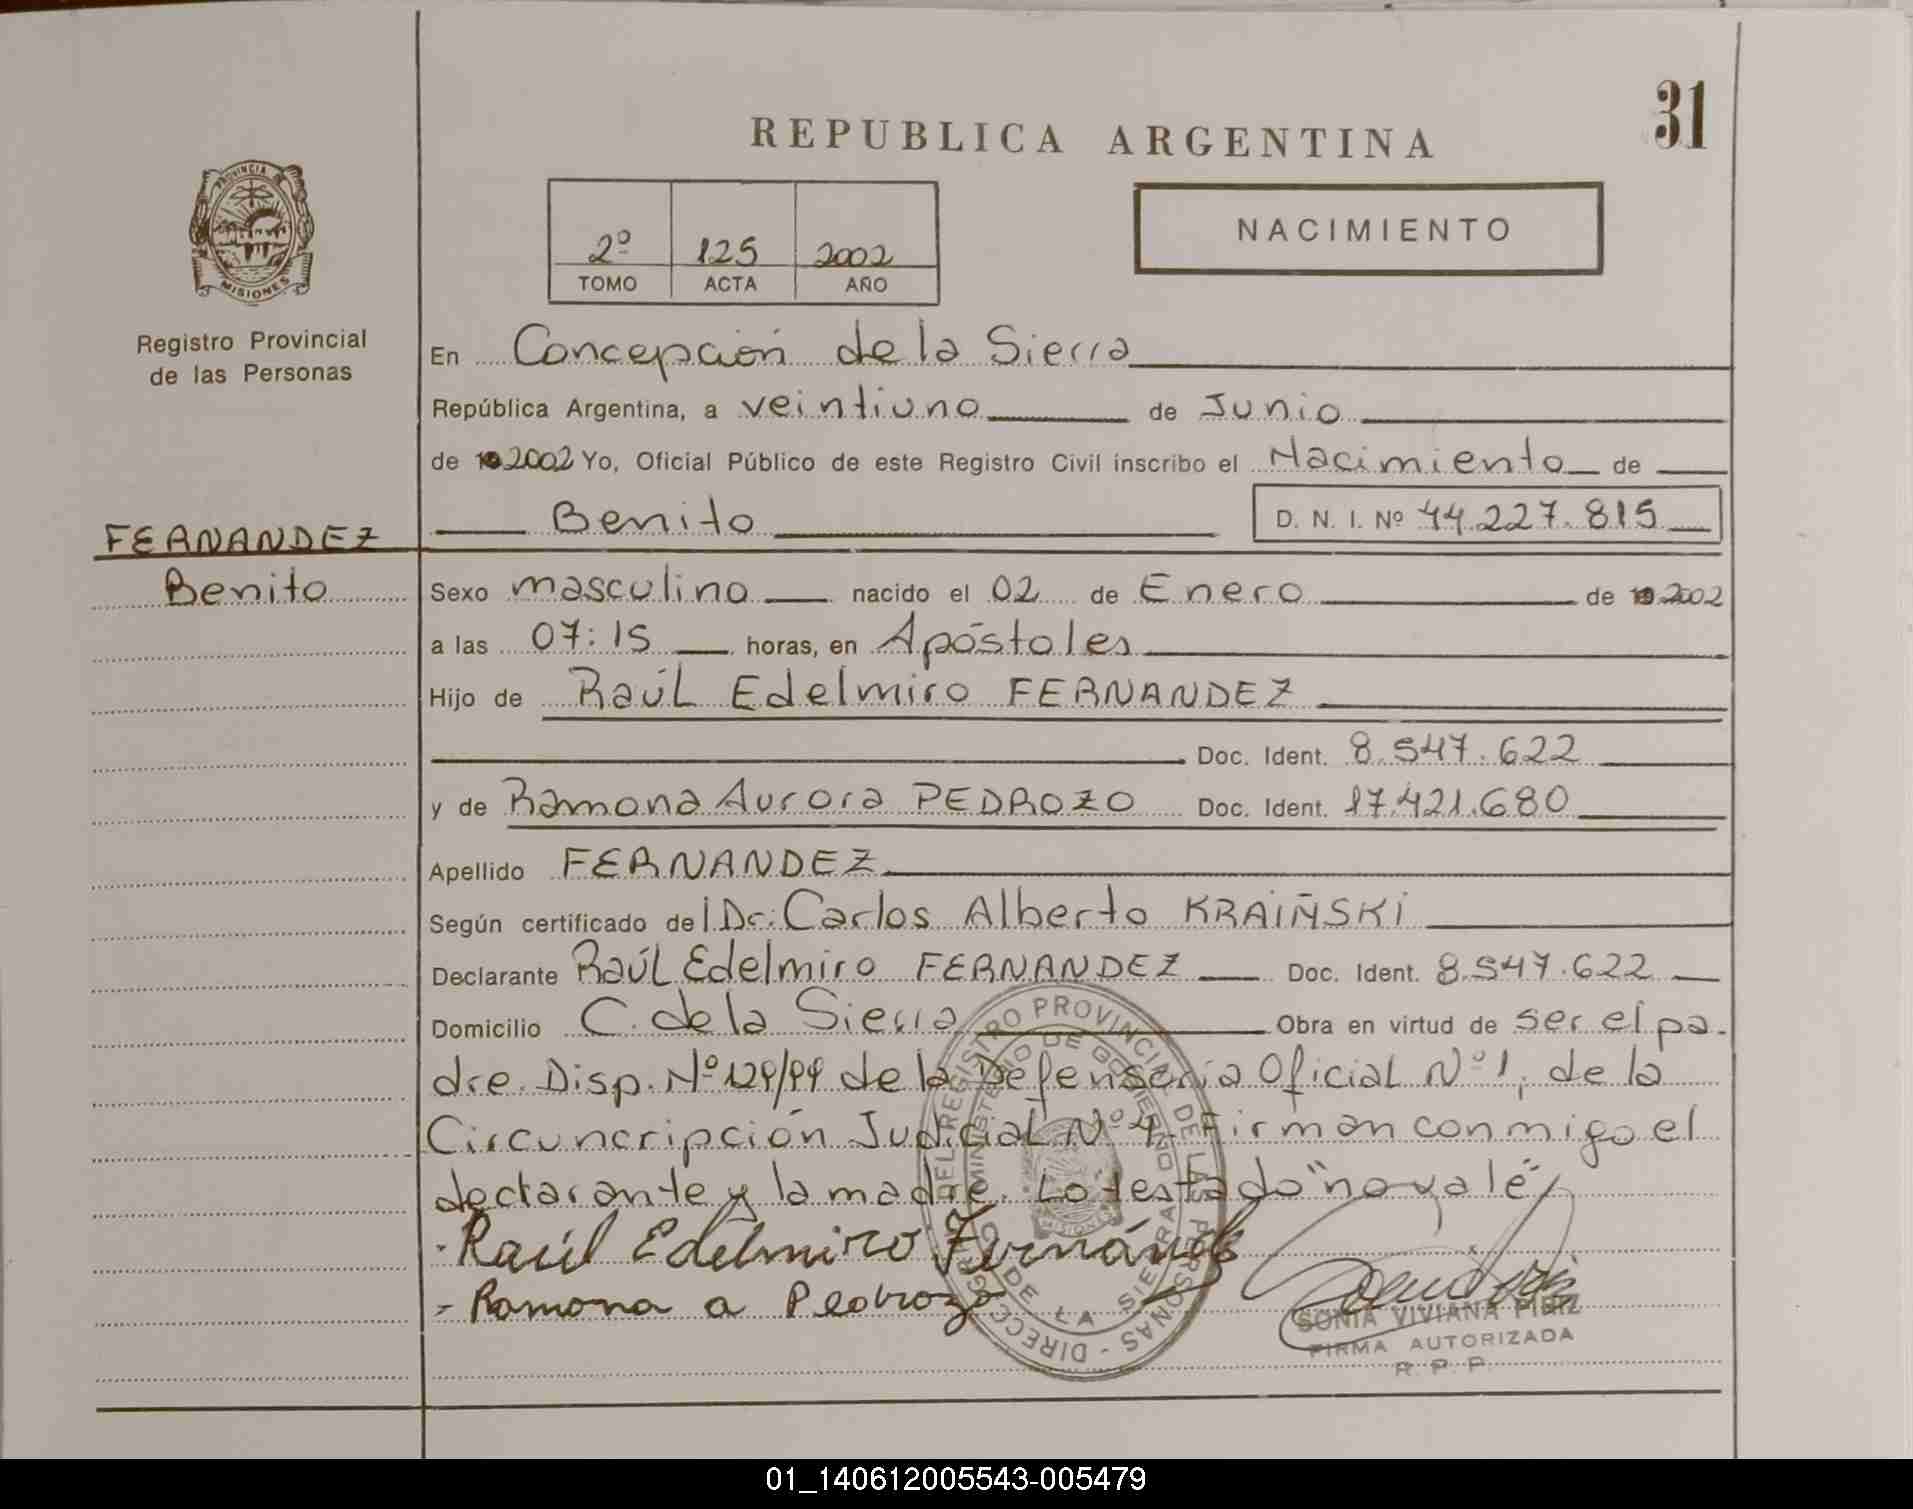 31
REPUBLICA ARGENTINA
PROVINCIA DE
MISIONES
Registro Provincial
de las Personas
2º 125 2002
TOMO ACTA AÑO
NACIMIENTO
En Concepción de la Sierra
República Argentina, a veintiuno de Junio
de 2002 Yo, Oficial Público de este Registro Civil inscribo el Nacimiento de
Benito D. N. I. Nº 44.227.815
FERNANDEZ
Benito
Sexo masculino nacido el 02 de Enero de 2002
a las 07:15 horas, en Apóstoles
Hijo de Raúl Edelmiro FERNANDEZ
Doc. Ident. 8.547.622
y de Ramona Aurora PEDROZO Doc. Ident. 17.421.680
Apellido FERNANDEZ
Según certificado del Dr: Carlos Alberto KRAIÑSKI
Declarante Raúl Edelmiro FERNANDEZ Doc. Ident. 8.547.622
Domicilio C. de la Sierra Obra en virtud de ser el pa-
dre. Disp. Nº 129/99 de la Defensoria Oficial Nº 1, de la
Circuncripción Judicial Nº 4. Firman conmigo el
declarante y la madre. Lo testado "no vale"
Raúl Edelmiro Fernández
Ramona a Pedrozo
SONIA VIVIANA
FIRMA AUTORIZADA
R. P. P.
DIRECC. GRAL. DEL REGISTRO PROVINCIAL DE LAS PERSONAS
MINISTERIO DE GOBIERNO
DE LA SIERRA
MISIONES
01_140612005543-005479